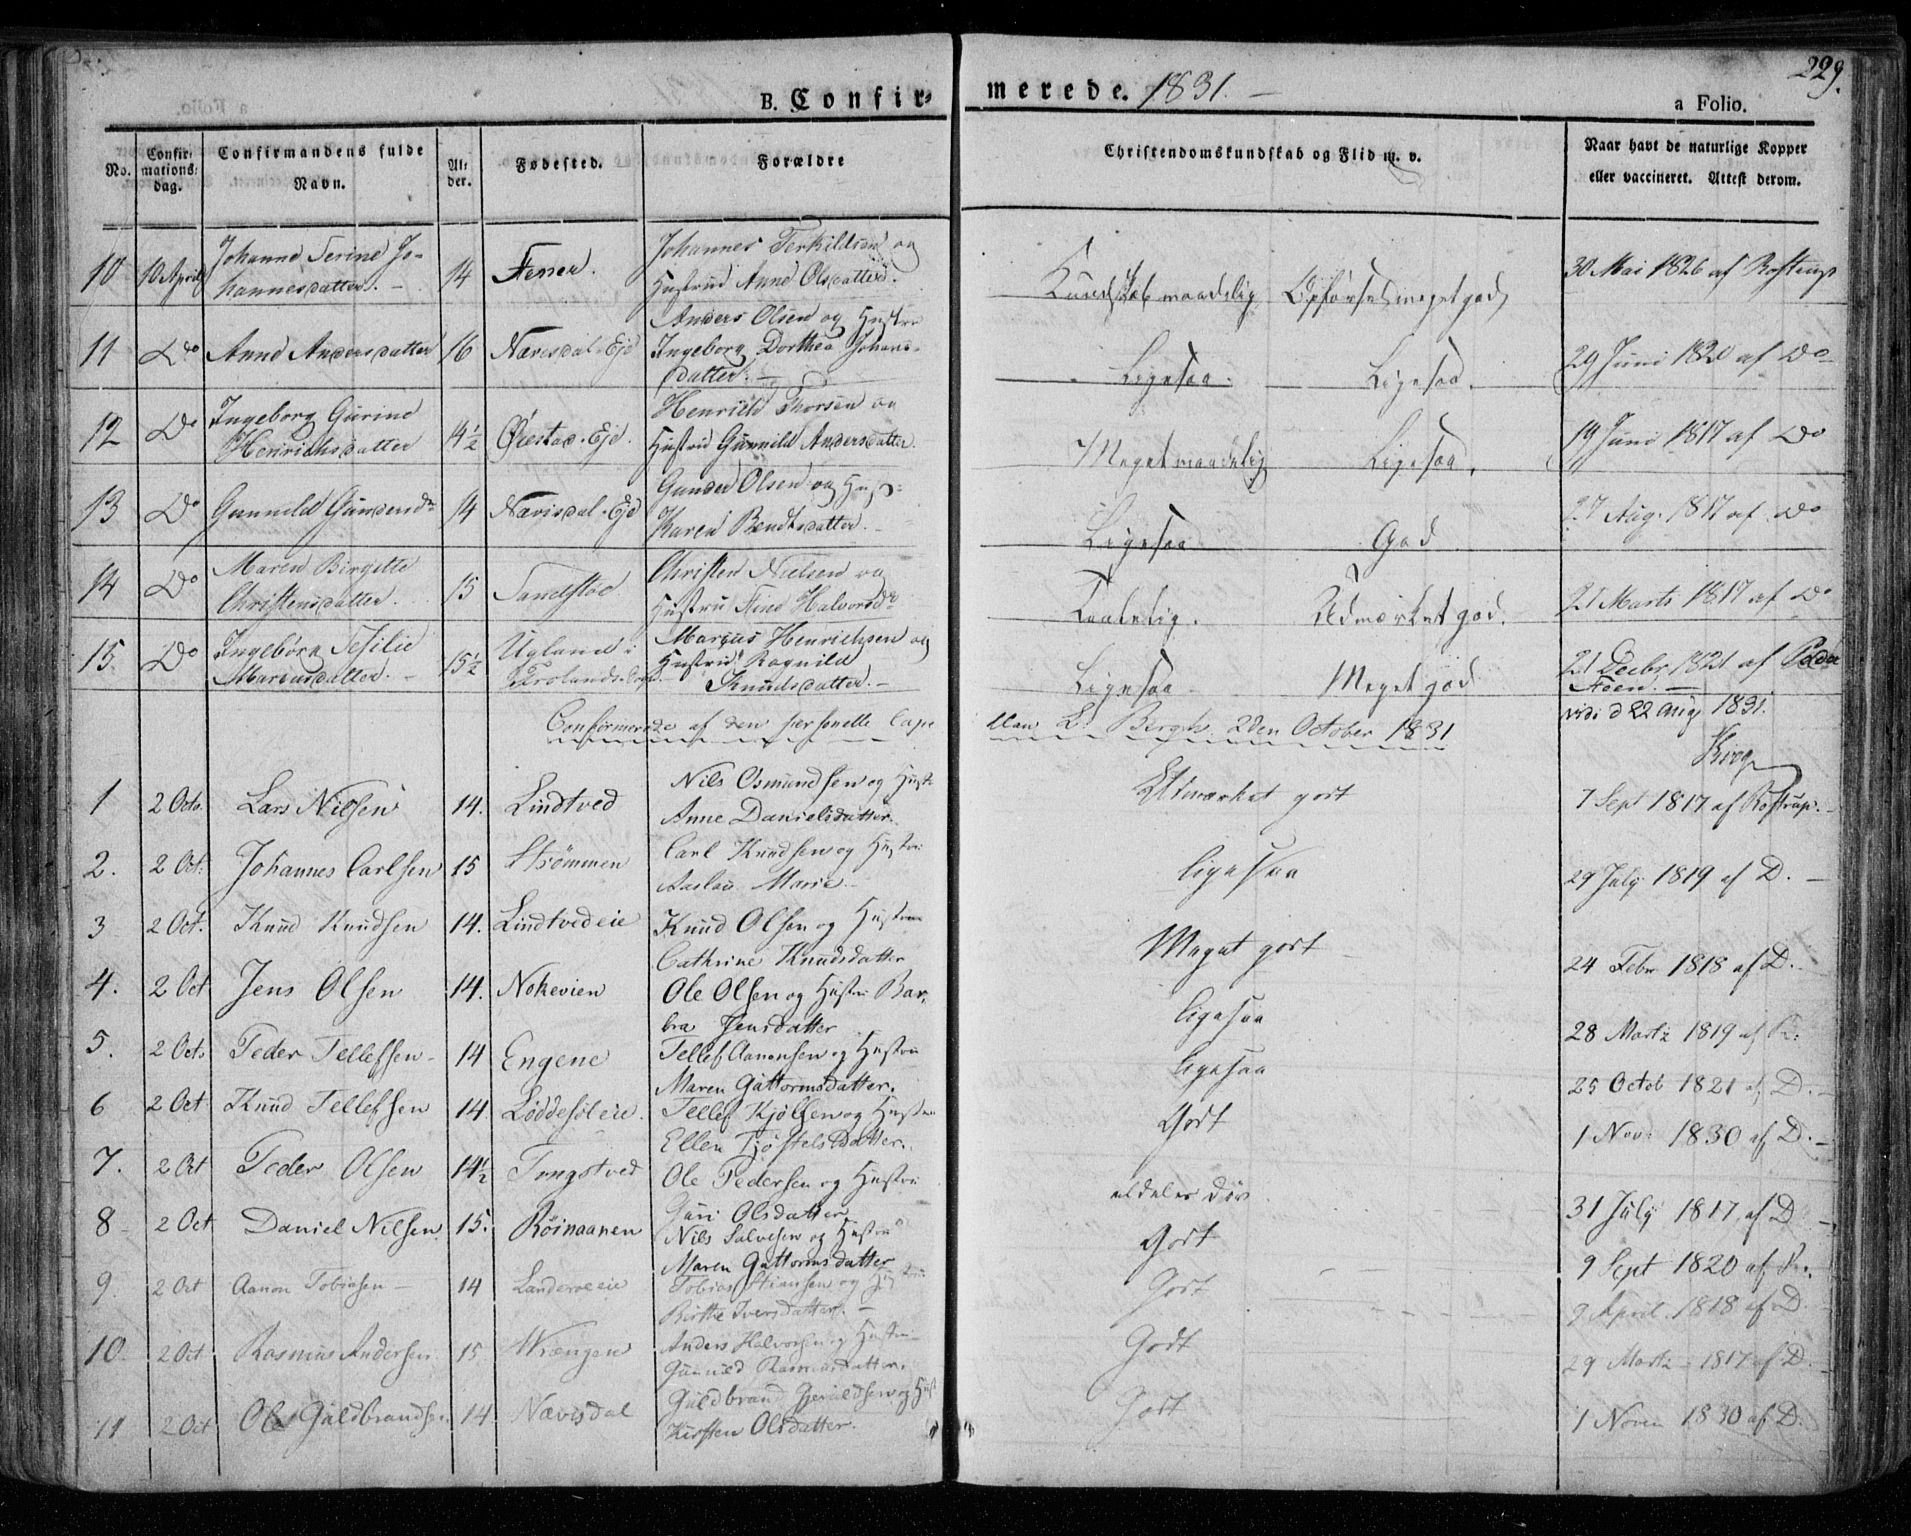 229.
B. Confirmerede. 1831.
a Folio.
No. Confirmationsdag. Confirmandens fulde Navn. Alder. Fødested. Forældre Christendomskundskab og Flid m. v. Naar havt de naturlige Kopper eller vaccineret. Attest derom.
10 10 April Johanne Serine Johannesdatter. 14 Johannes Terkildsen og Hustrue Anne Olsdatter. Kundskab maadelig Opførsel meget god 30 Mai 1826 af Rostrup
11 Do Anne Andersdatter 16 Nævisdal-Eje Anders Olsen og Hustru Ingeborg Dorthea Johansdatter. Ligesaa. Ligesaa. 29 Juni 1820 af Do
12 Do Ingeborg Gurine Henrichsdatter 14½ Øiestad-Eje. Henrich Thorsen og Hustrue Gunnild Andersdatter Meget maadelig Ligesaa. 19 Juni 1817 af Do
13 Do Gunnild Gundersdr 14 Nævisdal-Eje Gunder Olsen og Hust: Karen Bendtsdatter. Ligesaa God 27 Aug. 1817 af Do
14 Do Maren Birgitte Christensdatter. 15 Sandstøe Christen Nielsen og Hustru Halvorsdr Taalelig. Udmærket god. 21 Marts 1817 af Do
15. Do Ingebørg Marcusdatter. 15½ Ugland i Frolands Marcus Henrichsen og Hustrue Ragnild Knudsdatter. Ligesaa Meget god 21 Decbr 1821 af Peder Foen.
vidi d 22 Aug 1831.
Confirmerede af den personelle Capellan L. Bergh. 2den October 1831
1 2 Octo. Lars Nilsen 14. Lindtved Nils Osmundsen og Hustr. Anne Danielsdatter Udmærket godt 7 Sept 1817 af Rostrup.
2. 2 Oct. Johannes Carlsen 15 Strömmen Carl Knudsen og Hustru Aaslau Marie ligesaa 29 July 1819 af D.
3 2 Oct. Knud Knudsen 14. Lindtvedeie Knud Olsen og Hustrue Cathrine Knudsdatter Meget godt 24 Febr 1818 af D.
4. 2 Oct Jens Olsen 14. Nokevien Ole Olsen og Hustru Barbra Jensdatter ligesaa 28 Martz 1819 af R:
5. 2 Octo Peder Tellefsen 14 Engene Tellef Aanonsen og Hustru Maren Guttormsdatter. ligesaa 25 Octob 1821 af D.
6 2 Oct Knud Tellefsen 14. Løddesøleie. Tellef Kjölsen og Hustru Ellen Tjöstelsdatter. Godt 1 Nov. 1830 af D.
7. 2 Oct Peder Olsen 14½ Tongstved Ole Pedersen og Hustru Guri Olsdatter aldeles döv. 31 July 1817 af D
8 2 Oct Daniel Nilsen 15. Röinaanen Nils Salvesen og Hustru Maren Guttormsdatter Godt 9 Sept 1820 af R.
9. 2 Oct Aanon Tobiasen 14 Landeroeeie Tobias Stiansen og Hustru Birthe Iversdatter. Godt 9 April. 1818 af D.
10. 2 Oct Rasmus Andersen 15 Wrængen Anders Halvorsen og Hustru Gunnild Rasmusdatter. Godt 29 Martz 1817 af D.
11 2 Oct Ole Guldbrandsen 14. Nævisdal Guldbrand Gjeruldsen og Hust Kirsten Olsdatter. Godt 1 Novem 1830 af D.